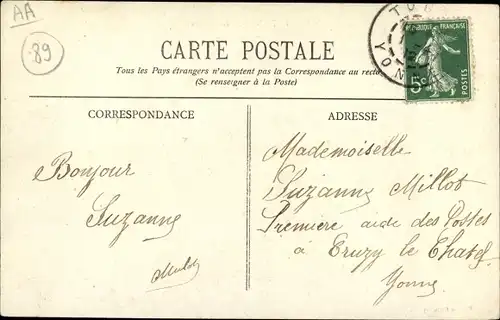 AA
89
CARTE POSTALE
Tous les Pays étrangers n'acceptent pas la Correspondance au recto
(Se renseigner à la Poste)
RÉPUBLIQUE FRANÇAISE
5c
POSTES
YONNE
CORRESPONDANCE
Bonjour
Suzanne
ADRESSE
Mademoiselle
Suzanne Millot
Première aide des Postes
à Cruzy le Chatel
Yonne